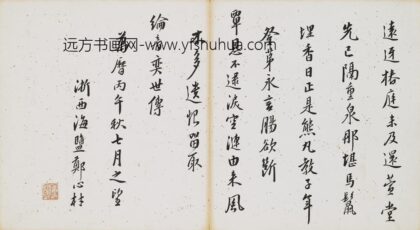 遠近椿庭未及逮萱堂
先已隔重泉那堪馬鬣
埋香日正是熊丸教子年
祭葬永言腸欲斷
覃恩不逮淚空漣由来風
木多遺恨留取
綸音奕世傳
萬曆丙午秋七月之望
浙西海鹽鄭心材
远方书画网 www.yfshuhua.com